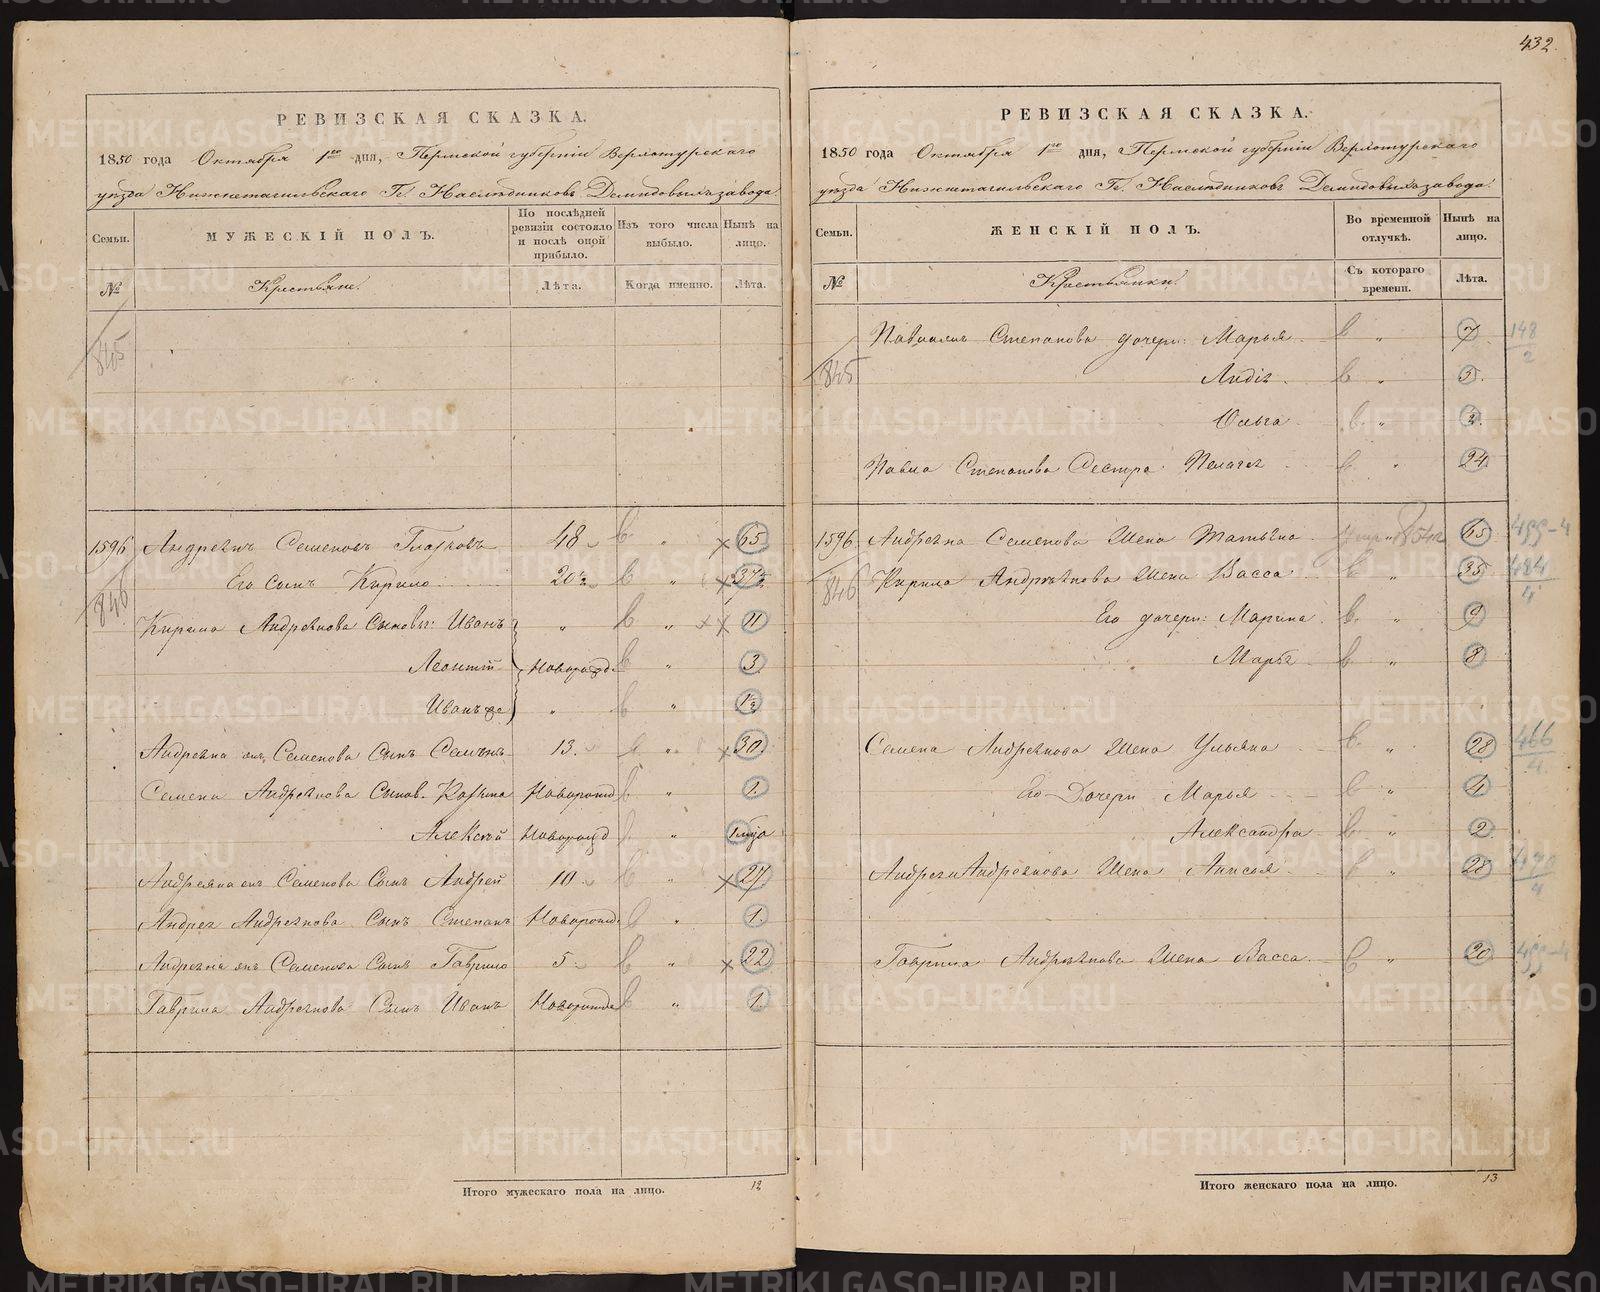 РЕВИЗСКАЯ СКАЗКА.
1850 года Октября 1го дня, Пермской губернiи Верхотурскаго
уѣзда Нижнетагильскаго Гг. Наслѣдниковъ Демидовыхъ завода
Семьи.
МУЖЕСКIЙ ПОЛЪ.
По послѣдней ревизiи состояло и послѣ оной прибыло.
Изъ того числа выбыло.
Нынѣ на лицо.
№
Крестьяне.
Лѣта.
Когда именно.
Лѣта.
845
1596 Андреянъ Семеновъ Глазковъ 48 65
846
Его сынъ Кирило 20½ 37½
Кирила Андреянова Сыновья: Иванъ " " 11
Леонтiй Новорожд " 3
Иванъ же " " 1½
Андреяна Семенова Сынъ Семенъ 13. " 30.
Семена Андреянова Сынов. Козьма Новорожд " 1.
Алексѣй Новорожд "
Андреяна Семенова Сынъ Андрей 10 " 27
Андрея Андреянова Сынъ Степанъ Новорожд " 1.
Андреяна Семенова Сынъ Гаврило 5 " 22
Гаврила Андреянова Сынъ Иванъ Новорожд " 1
Итого мужескаго пола на лицо. 12
432.
РЕВИЗСКАЯ СКАЗКА.
1850 года Октября 1го дня, Пермской губернiи Верхотурскаго
уѣзда Нижнетагильскаго Гг. Наслѣдниковъ Демидовыхъ завода.
Семьи.
ЖЕНСКIЙ ПОЛЪ.
Во временной отлучкѣ.
Нынѣ на лицо.
№
Крестьянки.
Съ котораго времени.
Лѣта.
Степанова дочери: Марья " 7 148/2
845
Лидiя " 5.
Ольга "
Павла Степанова Сестра Пелагея " 24
1596 Андреяна Семенова Жена Татьяна 65 499-4
846
Кирила Андреянова Жена Васса " 35 484/4
Его дочери: Марина " 9
Марья " 8
Семена Андреянова Жена Ульяна " 28 466/4
Его Дочери Марья " 4
Александра " 2
Андрея Андреянова Жена Анисья " 28
Гаврила Андреянова Жена Васса " 20 499-4
Итого женскаго пола на лицо. 13
METRIKI.GASO-URAL.RU